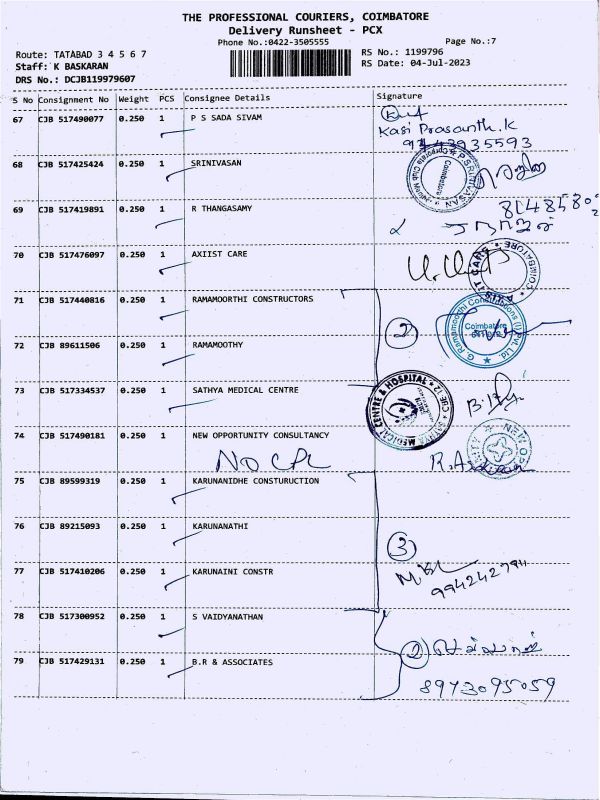 THE PROFESSIONAL COURIERS, COIMBATORE
Delivery Runsheet - PCX
Phone No.:0422-3505555
Page No.:7
Route: TATABAD 3 4 5 6 7
RS No.: 1199796
Staff: K BASKARAN
RS Date: 04-Jul-2023
DRS No.: DCJB119979607
S No Consignment No Weight PCS Consignee Details Signature
67 CJB 517490077 0.250 1 P S SADA SIVAM
Kasi Prasanth.K
68 CJB 517425424 0.250 1 SRINIVASAN
P.SRINIVASAN
Coimbatore
69 CJB 517419891 0.250 1 R THANGASAMY
70 CJB 517476097 0.250 1 AXIIST CARE
COIMBATORE
71 CJB 517440816 0.250 1 RAMAMOORTHI CONSTRUCTORS
2
G Ramamoorthi Constructions (I) Pvt. Ltd.
Coimbatore
72 CJB 89611506 0.250 1 RAMAMOOTHY
73 CJB 517334537 0.250 1 SATHYA MEDICAL CENTRE
SATHYA MEDICAL CENTRE & HOSPITAL
CBE-12
74 CJB 517490181 0.250 1 NEW OPPORTUNITY CONSULTANCY
75 CJB 89599319 0.250 1 KARUNANIDHE CONSTURUCTION
76 CJB 89215093 0.250 1 KARUNANATHI
3
77 CJB 517410206 0.250 1 KARUNAINI CONSTR
78 CJB 517300952 0.250 1 S VAIDYANATHAN
2
79 CJB 517429131 0.250 1 B.R & ASSOCIATES
8973095059